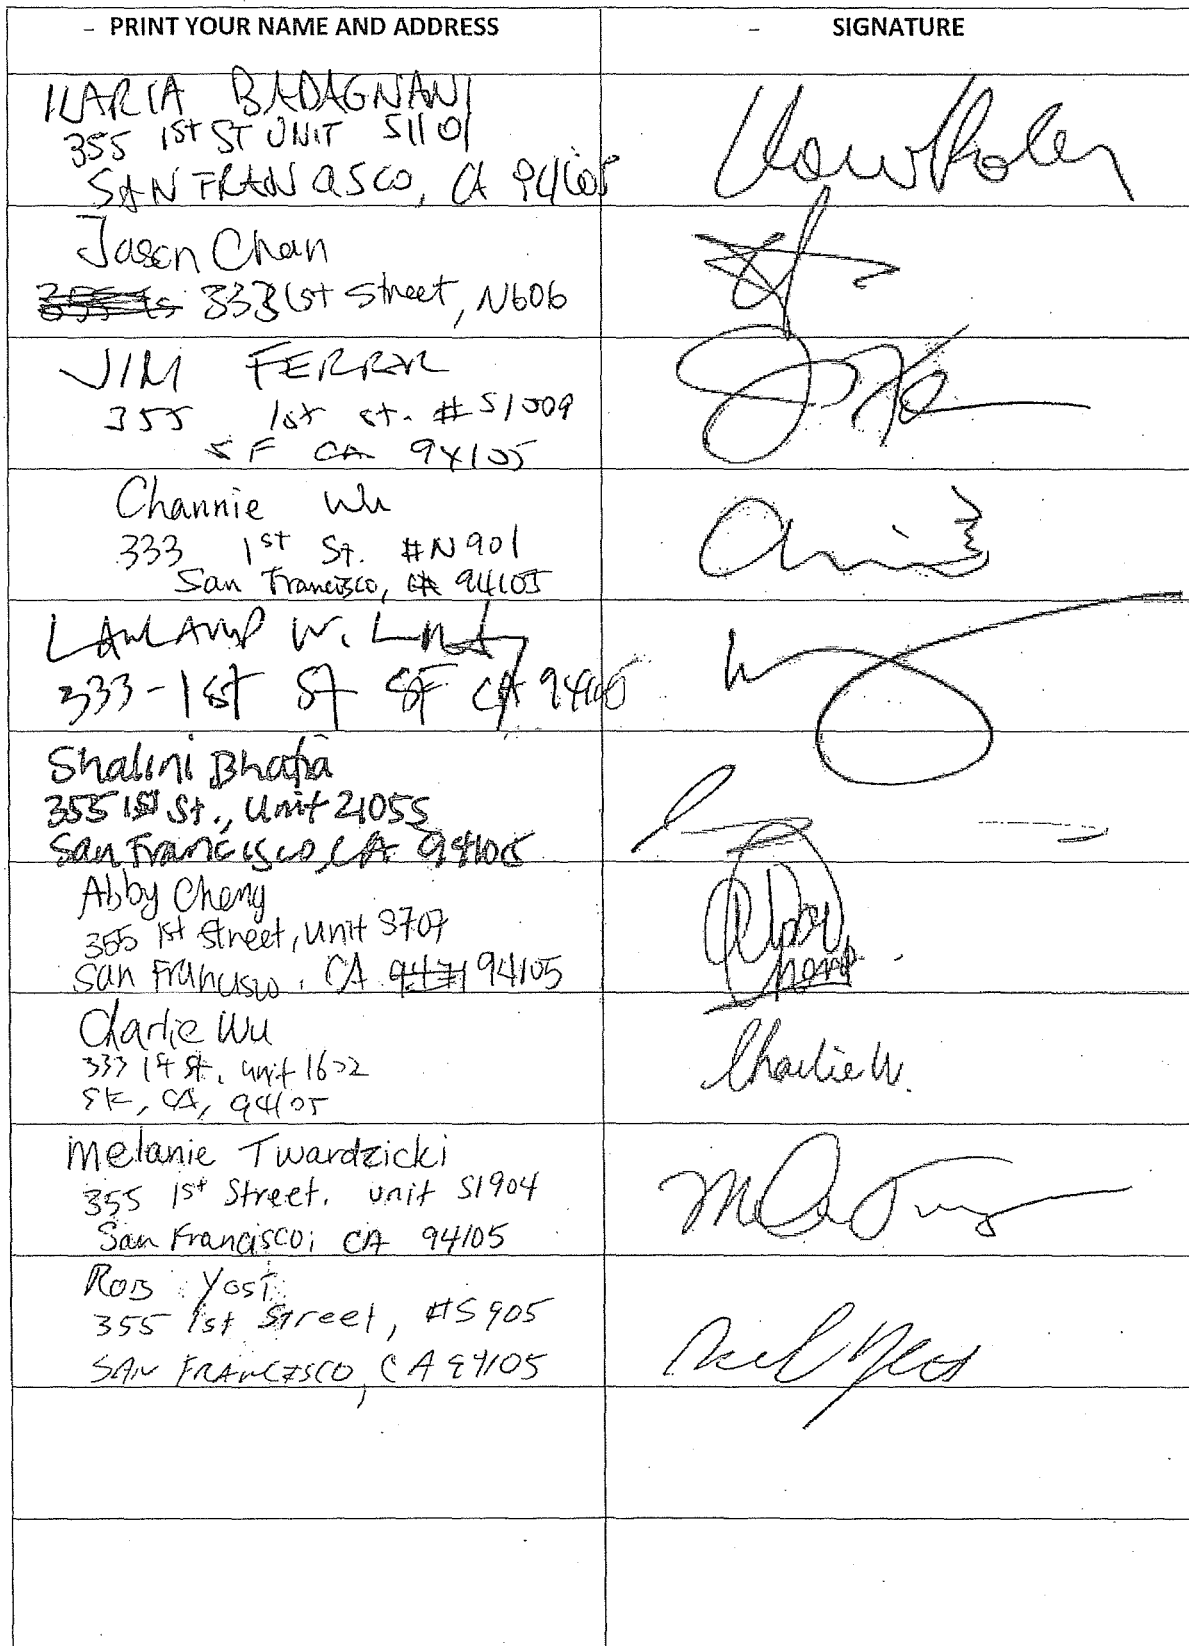 – PRINT YOUR NAME AND ADDRESS – SIGNATURE
ILARIA BADAGNANI
355 1ST ST UNIT S1101
SAN FRANCISCO, CA 94105
Jason Chan
333 1st Street, N606
JIM FERRAR
355 1st St. # S1009
SF CA 94105
Channie Wu
333 1st St. #N901
San Francisco, CA 94105
W.
333-1st St SF CA 94105
Shalini Bhatia
355 1st St., Unit 2105S
San Francisco, CA 94105
Abby Cheng
355 1st Street, Unit 3707
San Francisco, CA 94105
Charlie Wu
333 1st St, unit 1602
SF, CA, 94105
Charlie W.
Melanie Twardzicki
355 1st Street. unit S1904
San Francisco, CA 94105
ROB YOST
355 1st Street, #S905
SAN FRANCISCO, CA 94105